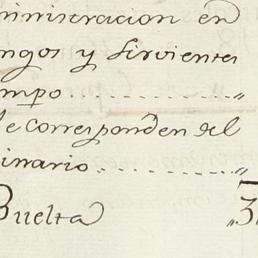 ministracion en
ngos y sirvientes
empo . . . . . . . . . . . . . . „
le corresponden del
inario . . . . . . . . . . . . . „
Buelta „3